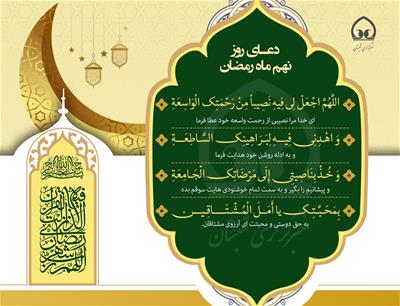 دعـای روز
نهم ماه رمضان
اللَّهُمَّ اجْعَلْ لِي فِيهِ نَصِيباً مِنْ رَحْمَتِكَ الْوَاسِعَةِ
ای خدا مرا نصیبی از رحمت واسعه خود عطا فرما
وَ اهْدِنِي فِيهِ لِبَرَاهِينِكَ السَّاطِعَةِ
و به ادله روشن خود هدایت فرما
وَ خُذْ بِنَاصِيَتِي إِلَى مَرْضَاتِكَ الْجَامِعَةِ
و پیشانیم را بگیر و به سمت تمام خوشنودی هایت سوقم بده
بِمَحَبَّتِكَ يَا أَمَلَ الْمُشْتَاقِينَ
به حق دوستی و محبتت ای آرزوی مشتاقان.